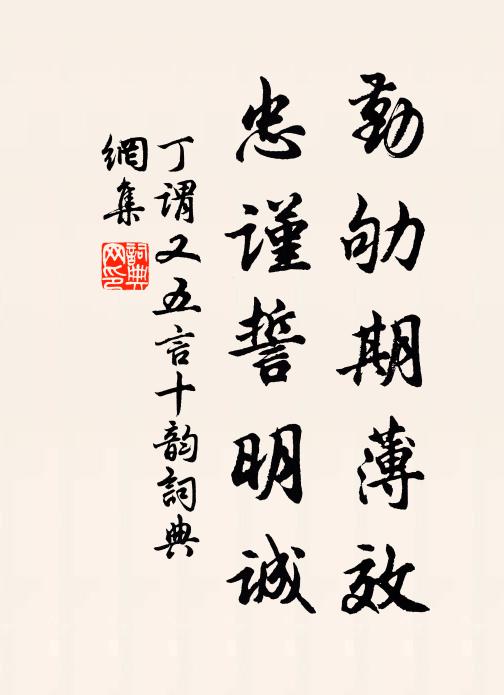 勤劬期薄效
忠謹誓明誠
丁謂又五言十韵詞典
網集
詞典網印